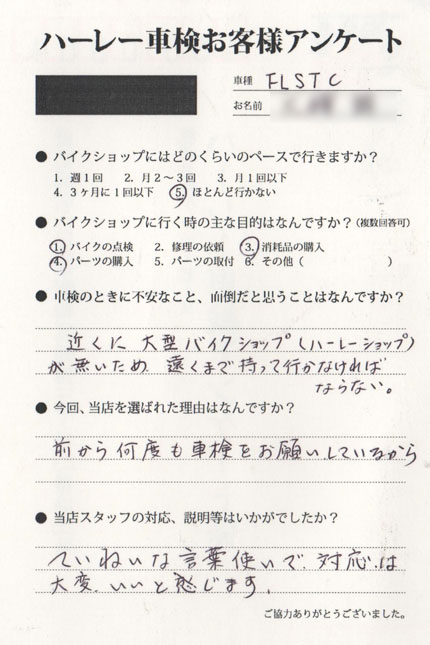 ハーレー車検お客様アンケート
車種 FLSTC
お名前
● バイクショップにはどのくらいのペースで行きますか？
1. 週1回 2. 月2〜3回 3. 月1回以下
4. 3ヶ月に1回以下 5. ほとんど行かない
● バイクショップに行く時の主な目的はなんですか？（複数回答可）
1. バイクの点検 2. 修理の依頼 3. 消耗品の購入
4. パーツの購入 5. パーツの取付 6. その他（ ）
● 車検のときに不安なこと、面倒だと思うことはなんですか？
近くに大型バイクショップ（ハーレーショップ）
が無いため 遠くまで持って行かなければ
ならない。
● 今回、当店を選ばれた理由はなんですか？
前から何度も車検をお願いしているから
● 当店スタッフの対応、説明等はいかがでしたか？
ていねいな言葉使いで、対応は
大変いいと感じます。
ご協力ありがとうございました。